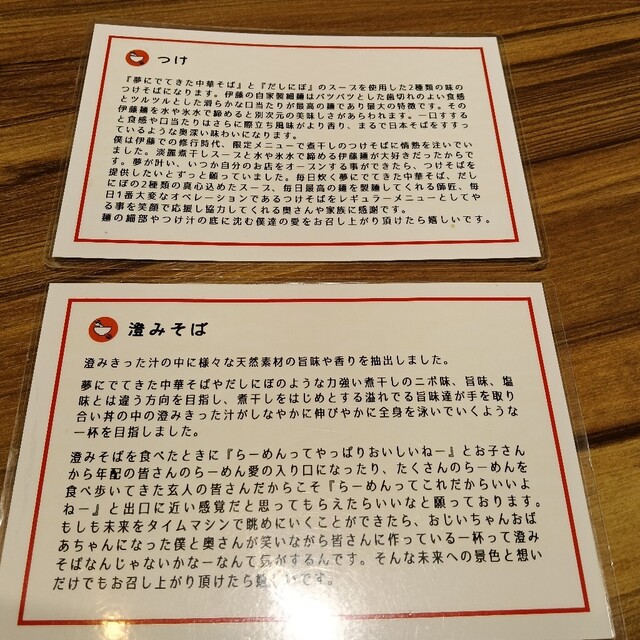 つけ
『夢にでてきた中華そば』と『だしにぼ』のスープを使用した2種類の味の
つけそばになります。伊藤の自家製細麺はパツパツとした歯切れのよい食感
とツルツルとした滑らかな口当たりが最高の麺であり最大の特徴です。その
伊藤麺を水や氷水で締めると別次元の美味しさがあらわれます。一口すする
と食感や口当たりはさらに際立ち風味がより香り、まるで日本そばをすすっ
ているような奥深い味わいになります。
僕は伊藤での修行時代、限定メニューで煮干しのつけそばに情熱を注いでい
ました。淡麗煮干しスープと水や氷水で締める伊藤麺が大好きだったからで
す。夢が叶い、いつか自分のお店をオープンする事ができたら、つけそばを
提供したいとずっと願っていました。毎日炊く夢にでてきた中華そば、だし
にぼの2種類の真心込めたスープ、毎日最高の麺を製麺してくれる師匠、毎
日1番大変なオペレーションであるつけそばをレギュラーメニューとしてや
る事を笑顔で応援し協力してくれる奥さんや家族に感謝です。
麺の細部やつけ汁の底に沈む僕達の愛をお召し上がり頂けたら嬉しいです。
澄みそば
澄みきった汁の中に様々な天然素材の旨味や香りを抽出しました。
夢にでてきた中華そばやだしにぼのような力強い煮干しのニボ味、旨味、塩
味とは違う方向を目指し、煮干しをはじめとする溢れでる旨味達が手を取り
合い丼の中の澄みきった汁がしなやかに伸びやかに全身を泳いでいくような
一杯を目指しました。
澄みそばを食べたときに『らーめんってやっぱりおいしいねー』とお子さん
から年配の皆さんのらーめん愛の入り口になったり、たくさんのらーめんを
食べ歩いてきた玄人の皆さんだからこそ『らーめんってこれだからいいよ
ねー』と出口に近い感覚だと思ってもらえたらいいなと願っております。
もしも未来をタイムマシンで眺めにいくことができたら、おじいちゃんおば
あちゃんになった僕と奥さんが笑いながら皆さんに作っている一杯って澄み
そばなんじゃないかなーなんて気がするんです。そんな未来への景色と想い
だけでもお召し上がり頂けたら嬉しいです。